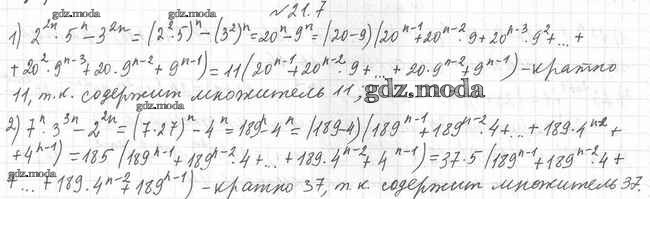 gdz.moda gdz.moda №21.7
1) 2²ⁿ·5ⁿ-3²ⁿ=(2²·5)ⁿ-(3²)ⁿ=20ⁿ-9ⁿ=(20-9)(20ⁿ⁻¹+20ⁿ⁻²·9+20ⁿ⁻³·9²+...+
+20²·9ⁿ⁻³+20·9ⁿ⁻²+9ⁿ⁻¹)=11(20ⁿ⁻¹+20ⁿ⁻²·9+...+20·9ⁿ⁻²+9ⁿ⁻¹)-кратно
11, т.к. содержит множитель 11; gdz.moda
gdz.moda
2) 7ⁿ·3³ⁿ-2²ⁿ=(7·27)ⁿ-4ⁿ=189ⁿ-4ⁿ=(189-4)(189ⁿ⁻¹+189ⁿ⁻²·4+...+189·4ⁿ⁻²+
+4ⁿ⁻¹)=185(189ⁿ⁻¹+189ⁿ⁻²·4+...+189·4ⁿ⁻²+4ⁿ⁻¹)=37·5(189ⁿ⁻¹+189ⁿ⁻²·4+
gdz.moda
+...+189·4ⁿ⁻²+189ⁿ⁻¹)-кратно 37, т.к содержит множитель 37.